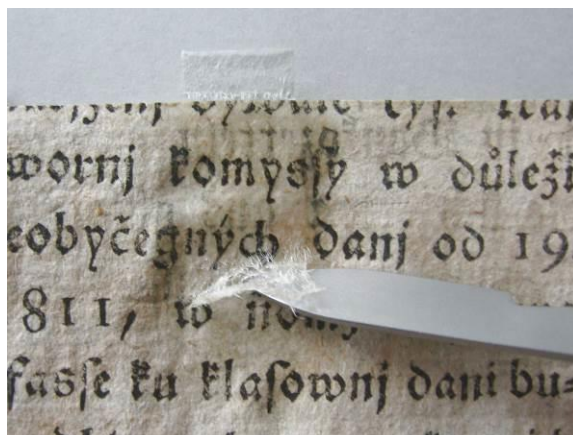 wornj komyſſy w důleži
eobyčegných danj od 19
811, w
faſſe ku klaſownj dani bu⸗